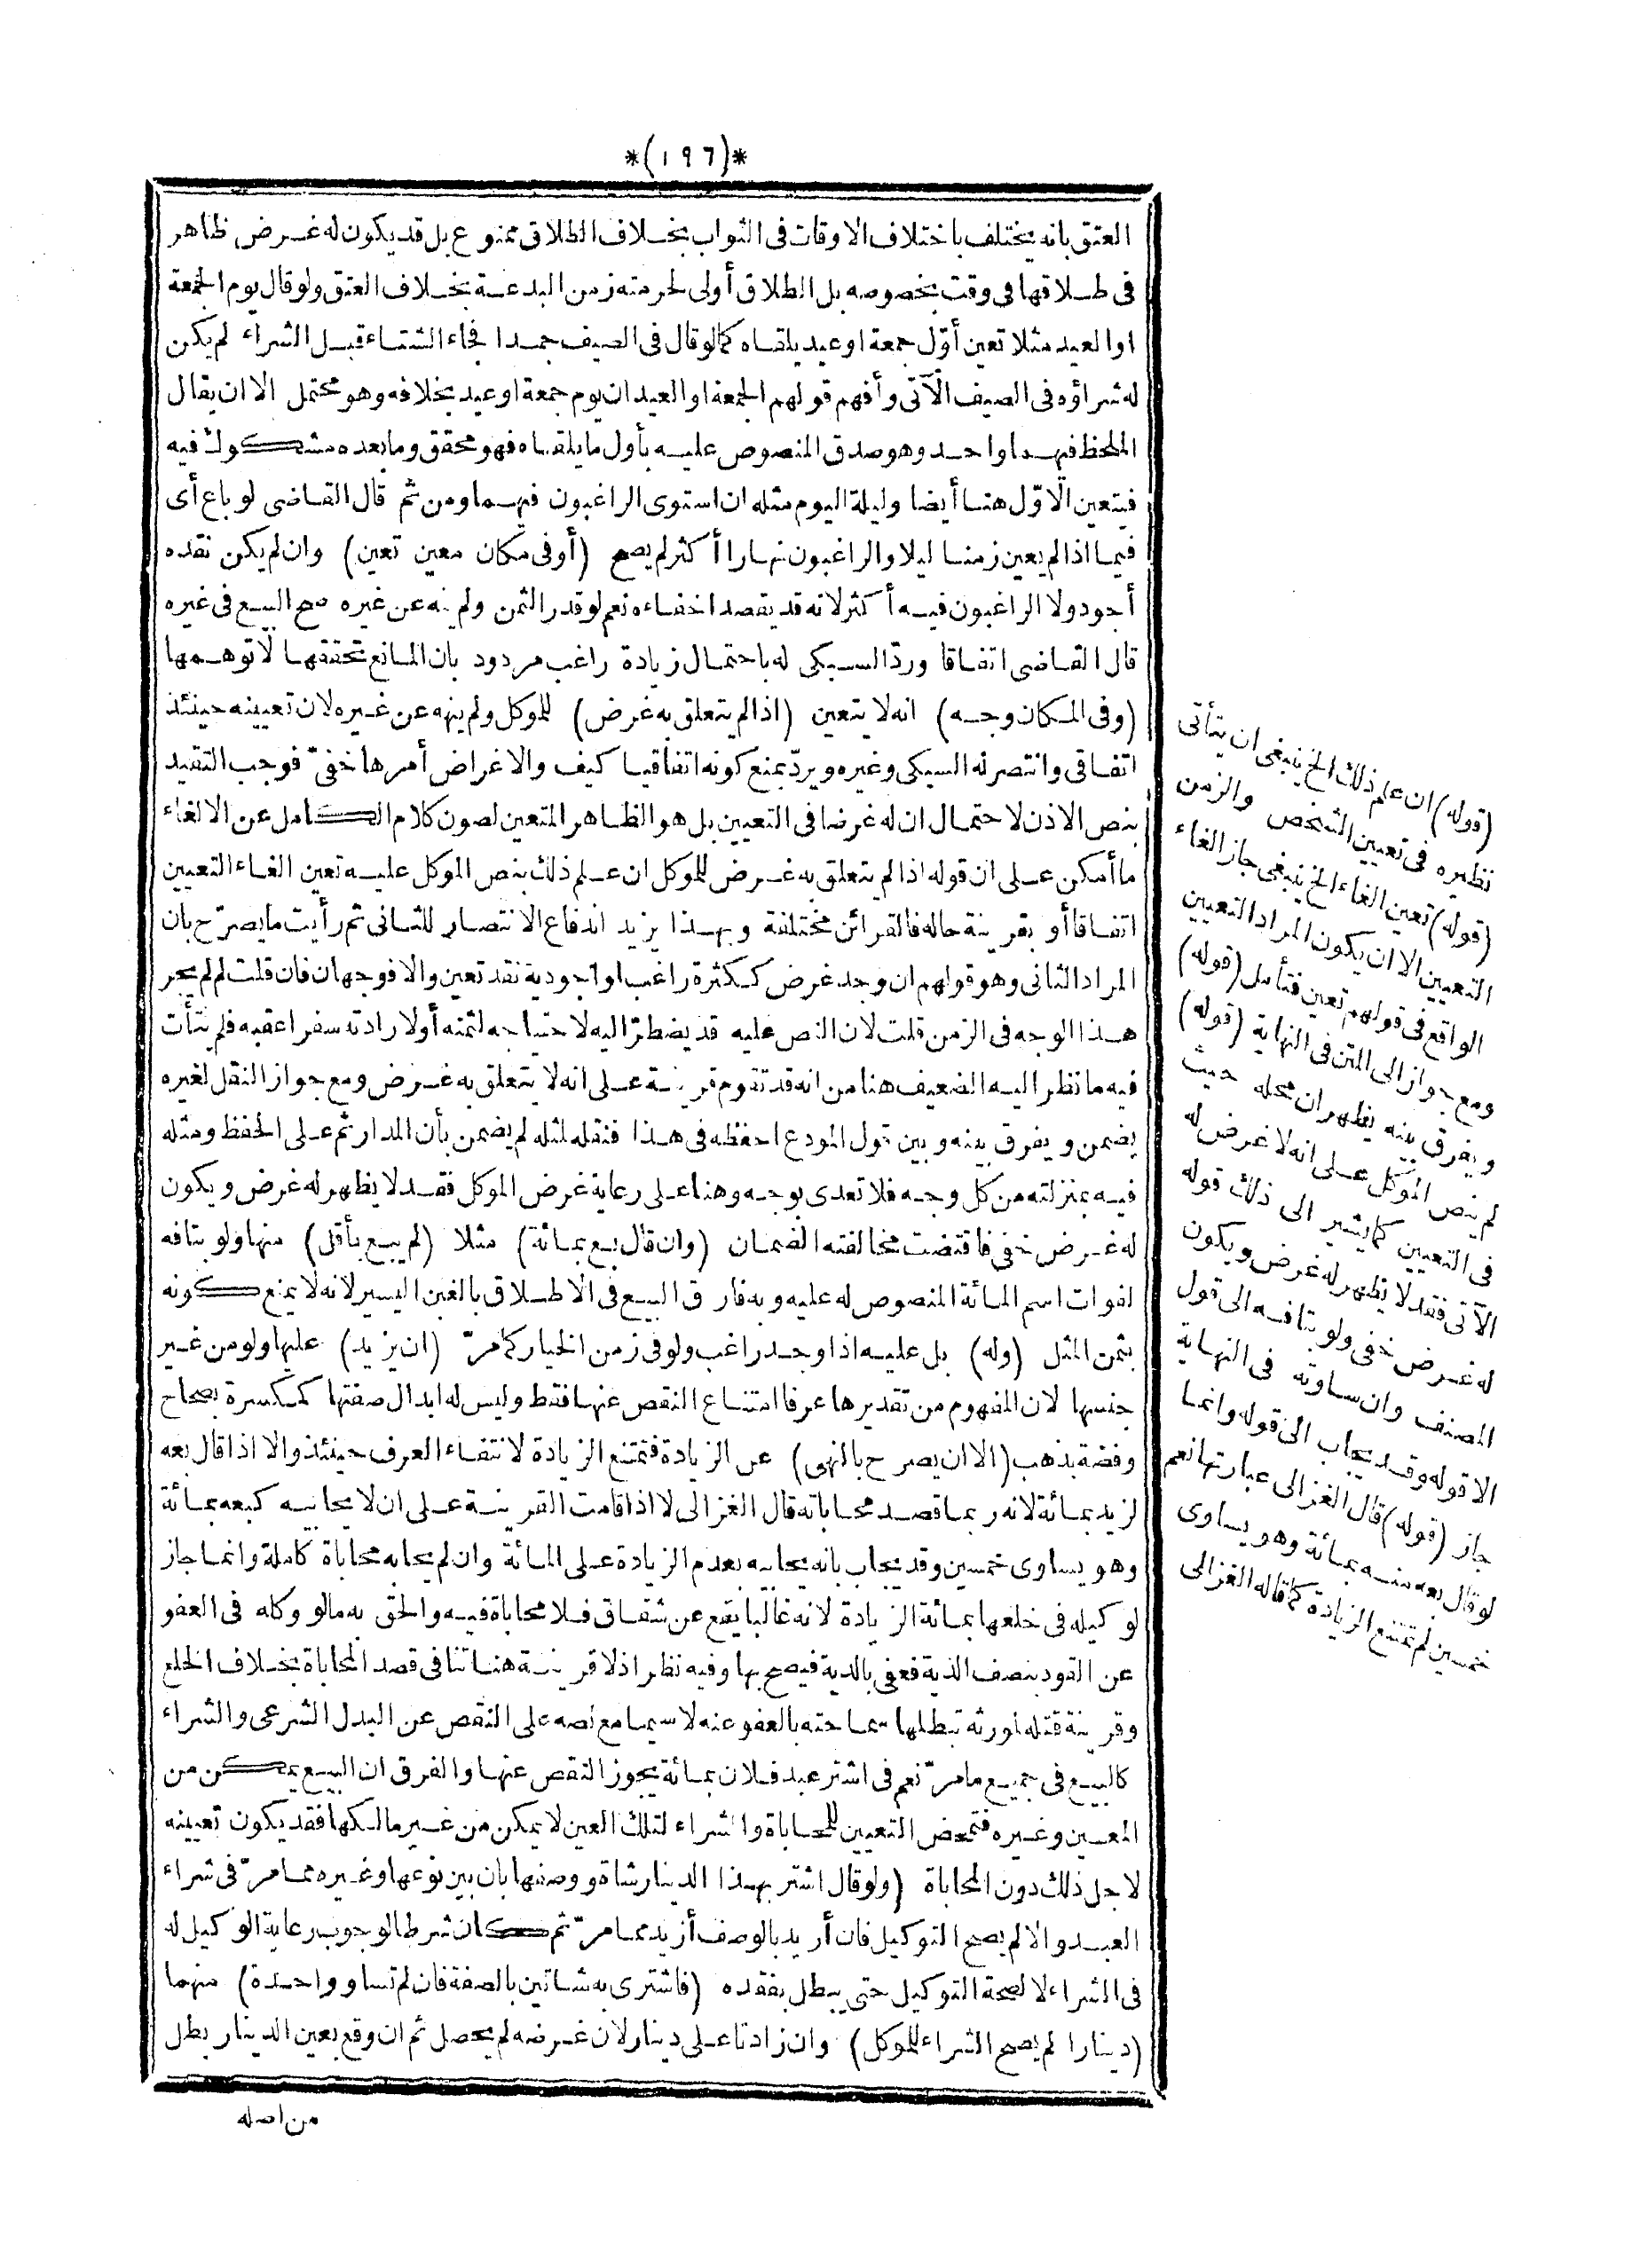 *(١٩٦)*
العتق بانه يختلف باختلاف الاوقات فى الثواب بخلاف الطلاق ممنوع بل قد يكون له غرض ظاهر
فى طلاقها فى وقت بخصوصه بل الطلاق أولى لحرمته زمن البدعة بخلاف العتق ولو قال يوم الجمعة
او العيد مثلا تعين أوّل جمعة او عيد يلقاه كما لو قال فى الصيف جمدا فجاء الشتاء قبل الشراء لم يكن
له شراؤه فى الصيف الآتى وأفهم قولهم الجمعة او العيد ان يوم جمعة او عيد بخلافه وهو محتمل الا ان يقال
الملحظ فيهما واحد وهو صدق المنصوص عليه بأول ما يلقاه فهو محقق وما بعده مشكوك فيه
فيتعين الاوّل هنا أيضا وليلة اليوم مثله ان استوى الراغبون فيهما ومن ثم قال القاضى لو باع أى
فيما اذا لم يعين زمنا ليلا والراغبون نهارا أكثر لم يصح (أو فى مكان معين تعين) وان لم يكن نقده
أجود ولا الراغبون فيه أكثر لانه قد يقصد اخفاءه نعم لو قدر الثمن ولم ينه عن غيره صح البيع فى غيره
قال القاضى اتفاقا وردّ السبكى له باحتمال زيادة راغب مردود بان المانع تحققها لا توهمها
(وفى المكان وجه) انه لا يتعين (اذا لم يتعلق به غرض) للموكل ولم ينهه عن غيره لان تعيينه حينئذ
اتفاقى وانتصر له السبكى وغيره ويردّ بمنع كونه اتفاقيا كيف والاغراض أمرها خفىّ فوجب التقيد
بنص الاذن لاحتمال ان له غرضا فى التعيين بل هو الظاهر المتعين لصون كلام الكامل عن الالغاء
ما أمكن على ان قوله اذا لم يتعلق به غرض للموكل ان علم ذلك بنص الموكل عليه تعين الغاء التعيين
اتفاقا أو بقرينة حاله فالقرائن مختلفة وبهذا يزيد اندفاع الانتصار للثانى ثم رأيت ما يصرّح بان
المراد الثانى وهو قولهم ان وجد غرض ككثرة راغب او اجودية نقد تعين والا فوجهان فان قلت لم لم يجر
هذا الوجه فى الزمن قلت لان النص عليه قد يضطرّ اليه لاحتياجه لثمنه أو لارادته سفرا عقبه فلم يتأت
فيه ما نظر اليه الضعيف هنا من انه قد تقوم قرينة على انه لا يتعلق به غرض ومع جواز النقل لغيره
يضمن ويفرق بينه وبين قول المودع احفظه فى هذا فنقله لمثله لم يضمن بأن المدار ثم على الحفظ ومثله
فيه بمنزلته من كل وجه فلا تعدى بوجه وهنا على رعاية غرض الموكل فقد لا يظهر له غرض ويكون
له غرض خفى فاقتضت مخالفته الضمان (وان قال بع بمائة) مثلا (لم يبع بأقل) منها ولو بتافه
لفوات اسم المائة المنصوص له عليه وبه فارق البيع فى الاطلاق بالغبن اليسير لانه لا يمنع كونه
بثمن المثل (وله) بل عليه اذا وجد راغب ولو فى زمن الخيار كما مرّ (ان يزيد) عليها ولو من غير
جنسها لان المفهوم من تقديرها عرفا امتناع النقص عنها فقط وليس له ابدال صفتها كمكسرة بصحاح
وفضة بذهب (الا ان يصرح بالنهى) عن الزيادة فتمتنع الزيادة لانتفاء العرف حينئذ والا اذا قال بعه
لزيد بمائة لانه ربما قصد محاباته قال الغزالى لا اذا قامت القرينة على ان لا محابيه كبعه بمائة
وهو يساوى خمسين وقد يجاب بانه يحابيه بعدم الزيادة على المائة وان لم يحابه محاباة كاملة وانما جاز
لوكيله فى خلعها بمائة الزيادة لانه غالبا يقع عن شقاق فلا محاباة فيه والحق به ما لو وكله فى العفو
عن القود بنصف الدية فعفى بالدية فيصح بها وفيه نظر اذ لا قرينة هنا تنافى قصد المحاباة بخلاف الخلع
وقرينة قتله لمورثه تبطلها سماحته بالعفو عنه لا سيما مع نصه على النقص عن البدل الشرعى والشراء
كالبيع فى جميع ما مرّ نعم فى اشتر عبد فلان بمائة يجوز النقص عنها والفرق ان البيع يمكن من
المعين وغيره فتمحض التعيين للمحاباة والشراء لتلك العين لا يمكن من غير مالكها فقد يكون تعيينه
لاجل ذلك دون المحاباة (ولو قال اشتر بهذا الدينار شاة ووصفها بان بين نوعها وغيره مما مرّ فى شراء
العبد والا لم يصح التوكيل فان أريد بالوصف أزيد مما مرّ ثم كان شرطا لوجوب رعاية الوكيل له
فى الشراء لا لصحة التوكيل حتى يبطل بفقده (فاشترى به شاتين بالصفة فان لم تساو واحدة) منهما
(دينارا لم يصح الشراء للموكل) وان زادتا على دينار لان غرضه لم يحصل ثم ان وقع بعين الدينار بطل
من اصله
(قوله) ان علم ذلك الخ ينبغى ان يتأتى
نظيره فى تعيين الشخص والزمن
(قوله) تعين الغاء الخ ينبغى جاز الغاء
التعيين الا ان يكون المراد التعيين
الواقع فى قولهم تعين فتأمل (قوله)
ومع جواز الى المتن فى النهاية (قوله)
ويفرق بينه يظهر ان محله حيث
لم ينص الموكل على انه لا غرض له
فى التعيين كما يشير الى ذلك قوله
الآتى فقد لا يظهر له غرض ويكون
له غرض خفى ولو بتافه الى قول
المصنف وان ساوته فى النهاية
الا قوله وقد يجاب الى قوله وانما
جاز (قوله) قال الغزالى عبارتها نعم
لو قال بعه منه بمائة وهو يساوى
خمسين لم تمتنع الزيادة كما قاله الغزالى